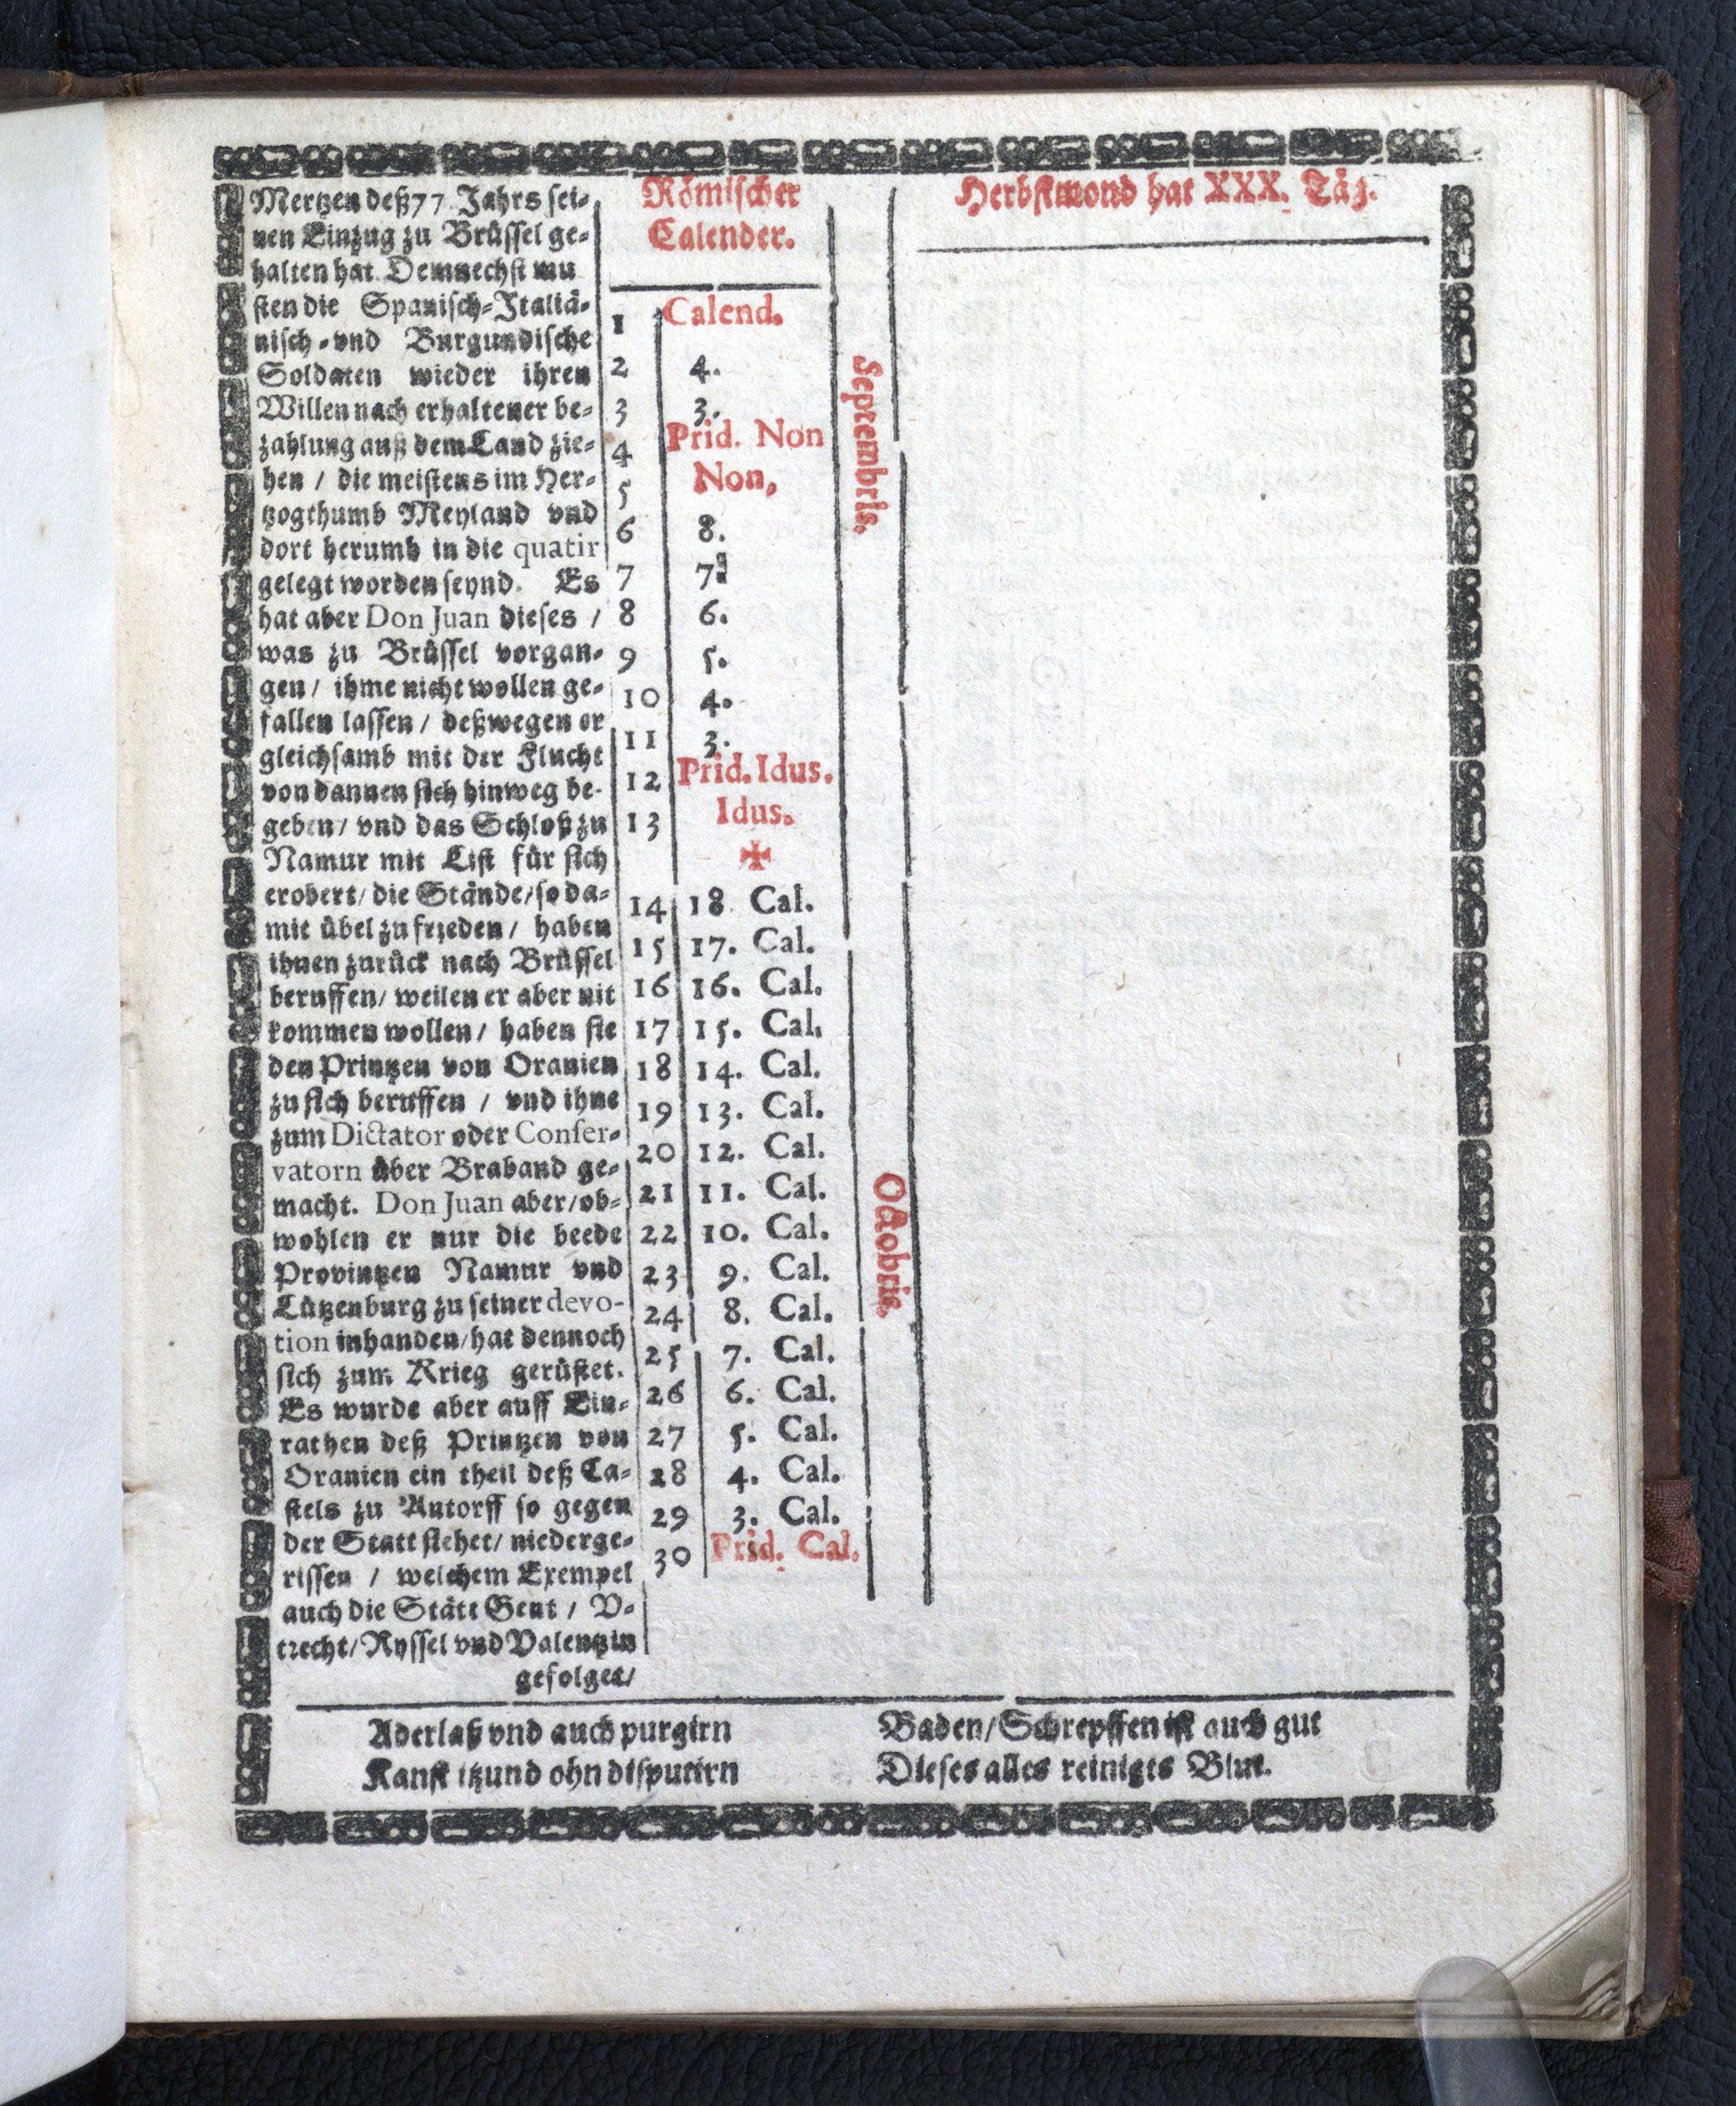 Mertzen deß77 Jahrs sei⸗
nen Einzug zu Brüssel ge⸗
halten hat Demnechst mu
sten die Spanisch⸗Italiä⸗
nisch⸗vnd Burgundische
Soldaten wieder ihren
Willen nach erhaltener be⸗
zahlung auß dem Land zie⸗
hen / die meistens im Her⸗
tzogthumb Meyland vnd
dort herumb in die quatir
gelegt worden seynd. Es
hat aber Don Juan dieses /
was zu Brüssel vorgan⸗
gen / ihme nicht wollen ge⸗
fallen lassen / deßwegen er
gleichsamb mit der Flucht
von dannen sich hinweg be⸗
geben / vnd das Schloß zu
Namur mit List für sich
erobert / die Stände / so da⸗
mit übel zu frieden / haben
ihnen zurück nach Brüssel
beruffen / weilen er aber nit
kommen wollen / haben sie
den Printzen von Oranien
zu sich beruffen / vnd ihne
zum Dictator oder Conser⸗
vatorn über Braband ge⸗
macht. Don Juan aber / ob⸗
wohlen er nur die beede
Provintzen Namur vnd
Lützenburg zu seiner devo-
tion inhanden / hat dennoch
sich zum Krieg gerüstet.
Es wurde aber auff Ein⸗
rathen deß Printzen von
Oranien ein theil deß Ca⸗
stels zu Antorff so gegen
der Statt stehet / niederge⸗
rissen / welchem Exempel
auch die Stätt Gent / V⸗
trecht / Ryssel vnd Valentzin
gefolget /
Römischer
Calender.
1 Calend.
2 4.
3 3.
4 Prid. Non
5 Non.
6 8.
7 7.
8 6.
9 5.
10 4.
11 3.
12 Prid. Idus.
13 Idus.
✠
14 18 Cal.
15 17. Cal.
16 16. Cal.
17 15. Cal.
18 14. Cal.
19 13. Cal.
20 12. Cal.
21 11. Cal.
22 10. Cal.
23 9. Cal.
24 8. Cal.
25 7. Cal.
26 6. Cal.
27 5. Cal.
28 4. Cal.
29 3. Cal.
30 Prid. Cal.
Septembris.
Octobris.
Herbstmond hat XXX. Täg.
Aderlaß vnd auch purgirn
Kanst itzund ohn disputirn
Baden / Schrepffen ist auch gut
Dieses alles reinigts Blut.